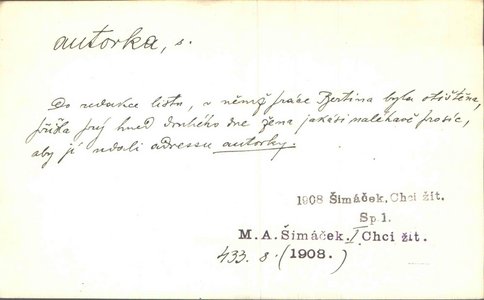 autorka, s.
Do redakce listu, v němž práce Bertina byla otištěna,
přišla prý hned druhého dne žena jakási naléhavě prosíc,
aby jí udali adressu autorky.
1908 Šimáček. Chci žít.
Sp 1.
M. A. Šimáček. I. Chci žít.
433. s. (1908.)